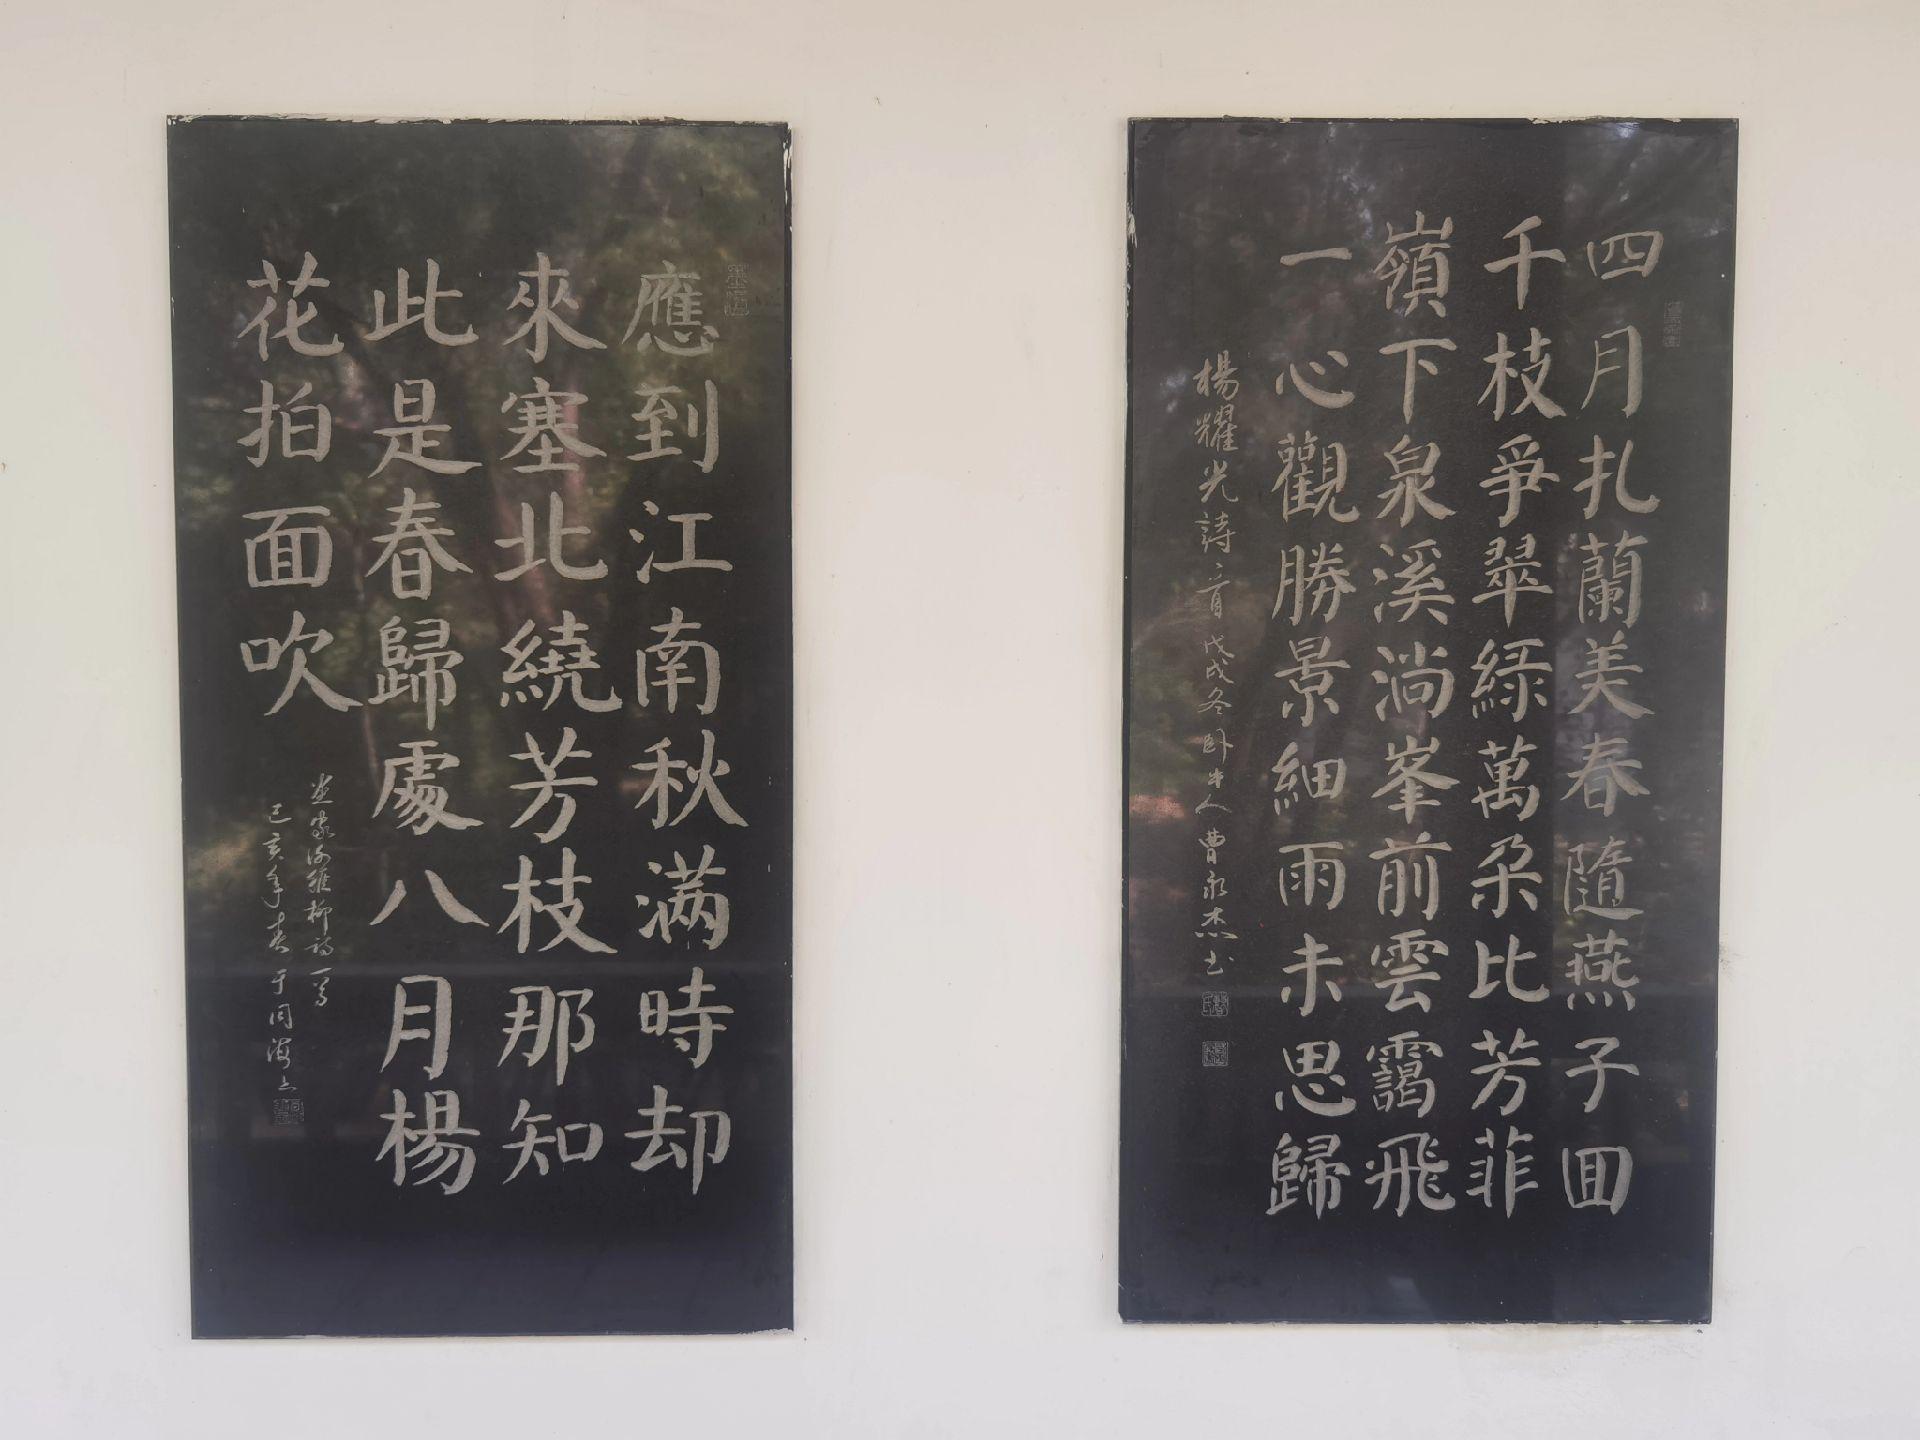 四月扎蘭美春隨燕子囬
千枝爭翠緑萬朶比芳菲
嶺下泉溪淌峯前雲靄飛
一心觀勝景細雨未思歸
楊耀光詩一首戊戌冬卧牛人曹永杰书
應到江南秋满時却
來塞北繞芳枝那知
此是春歸處八月楊
花拍面吹
柳詩一首
己亥年春于同海上